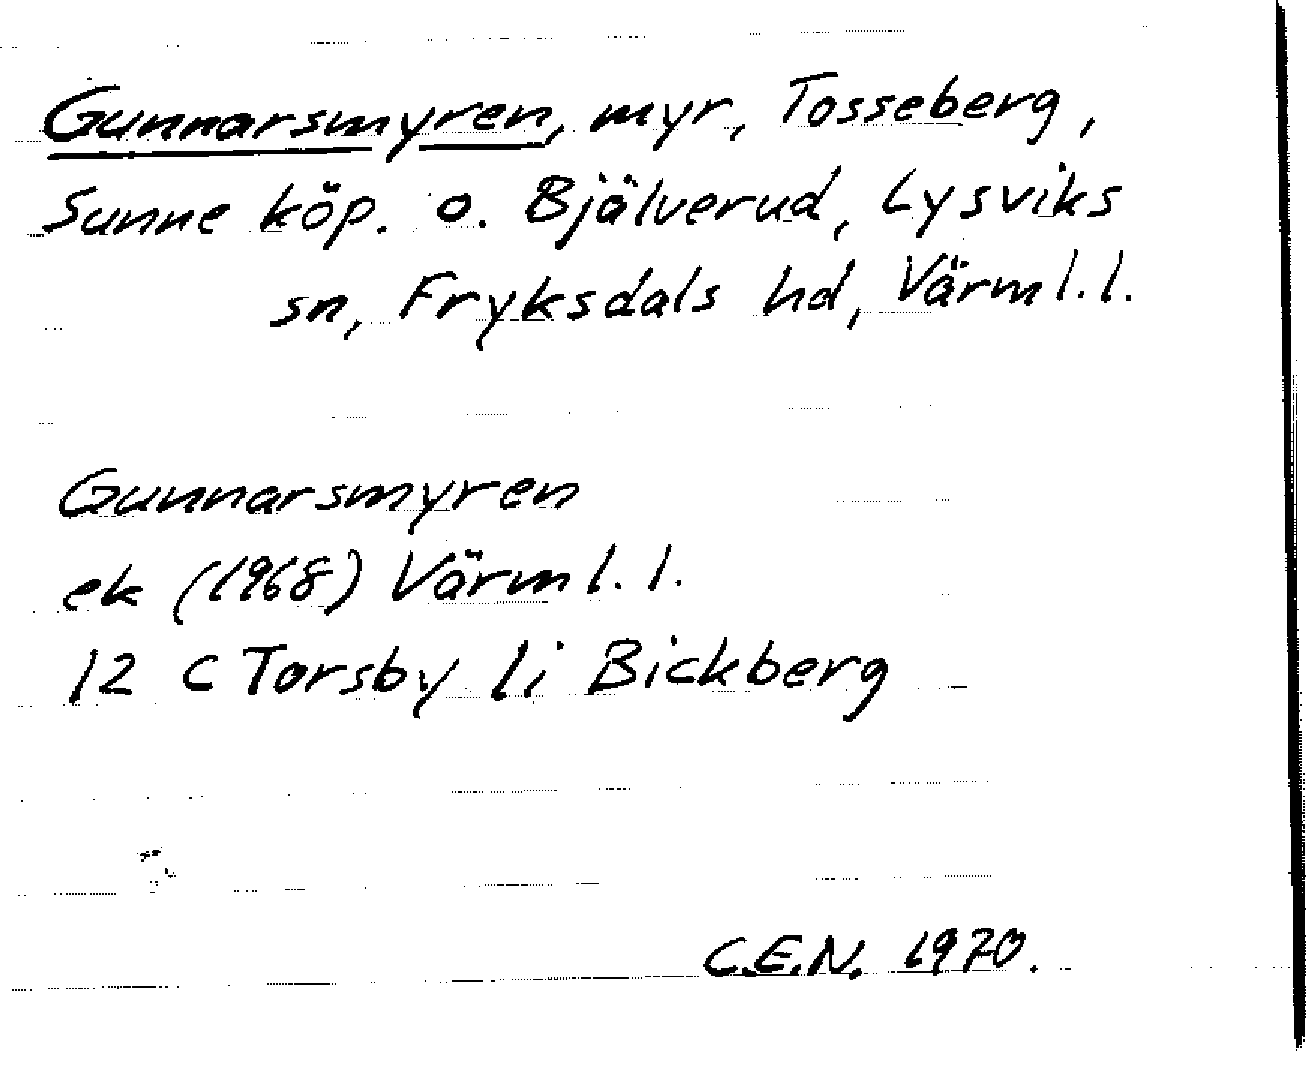 Gunnarsmyren, myr, Tosseberg,
Sunne köp. o. Bjälverud, Lysviks
sn, Fryksdals hd, Värml. l.
Gunnarsmyren
ek (1968) Värml. l.
12 C Torsby li Bickberg
C.E.N. 1970.